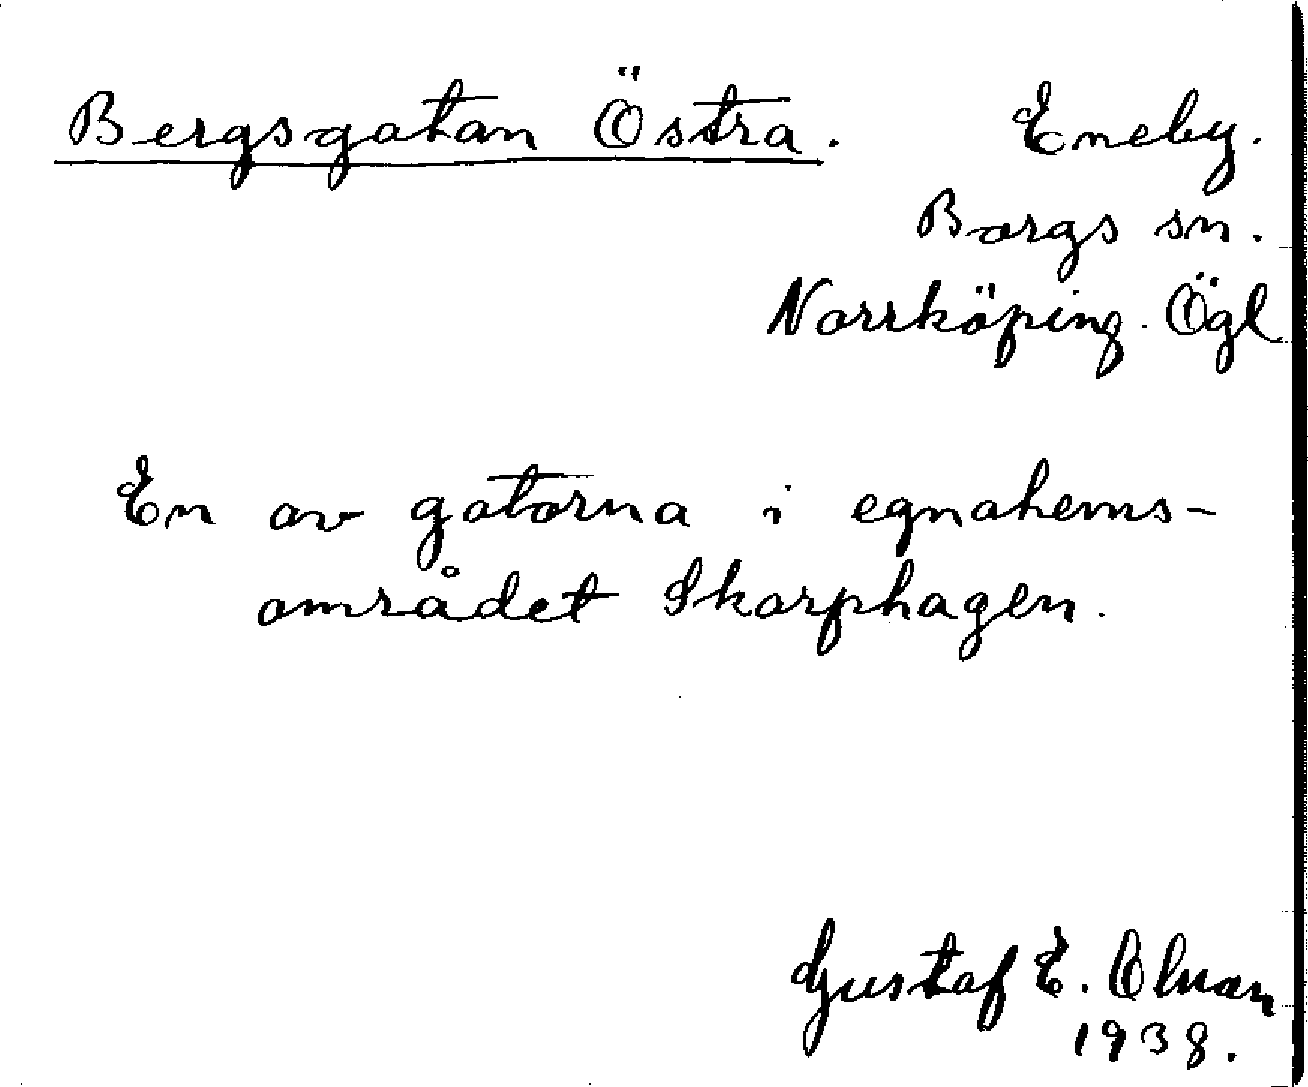 Bergsgatan Östra. Eneby.
Borgs sn.
Norrköping. Ögl
En av gatorna i egnahems-
området Skarphagen.
Gustaf E.
1938.